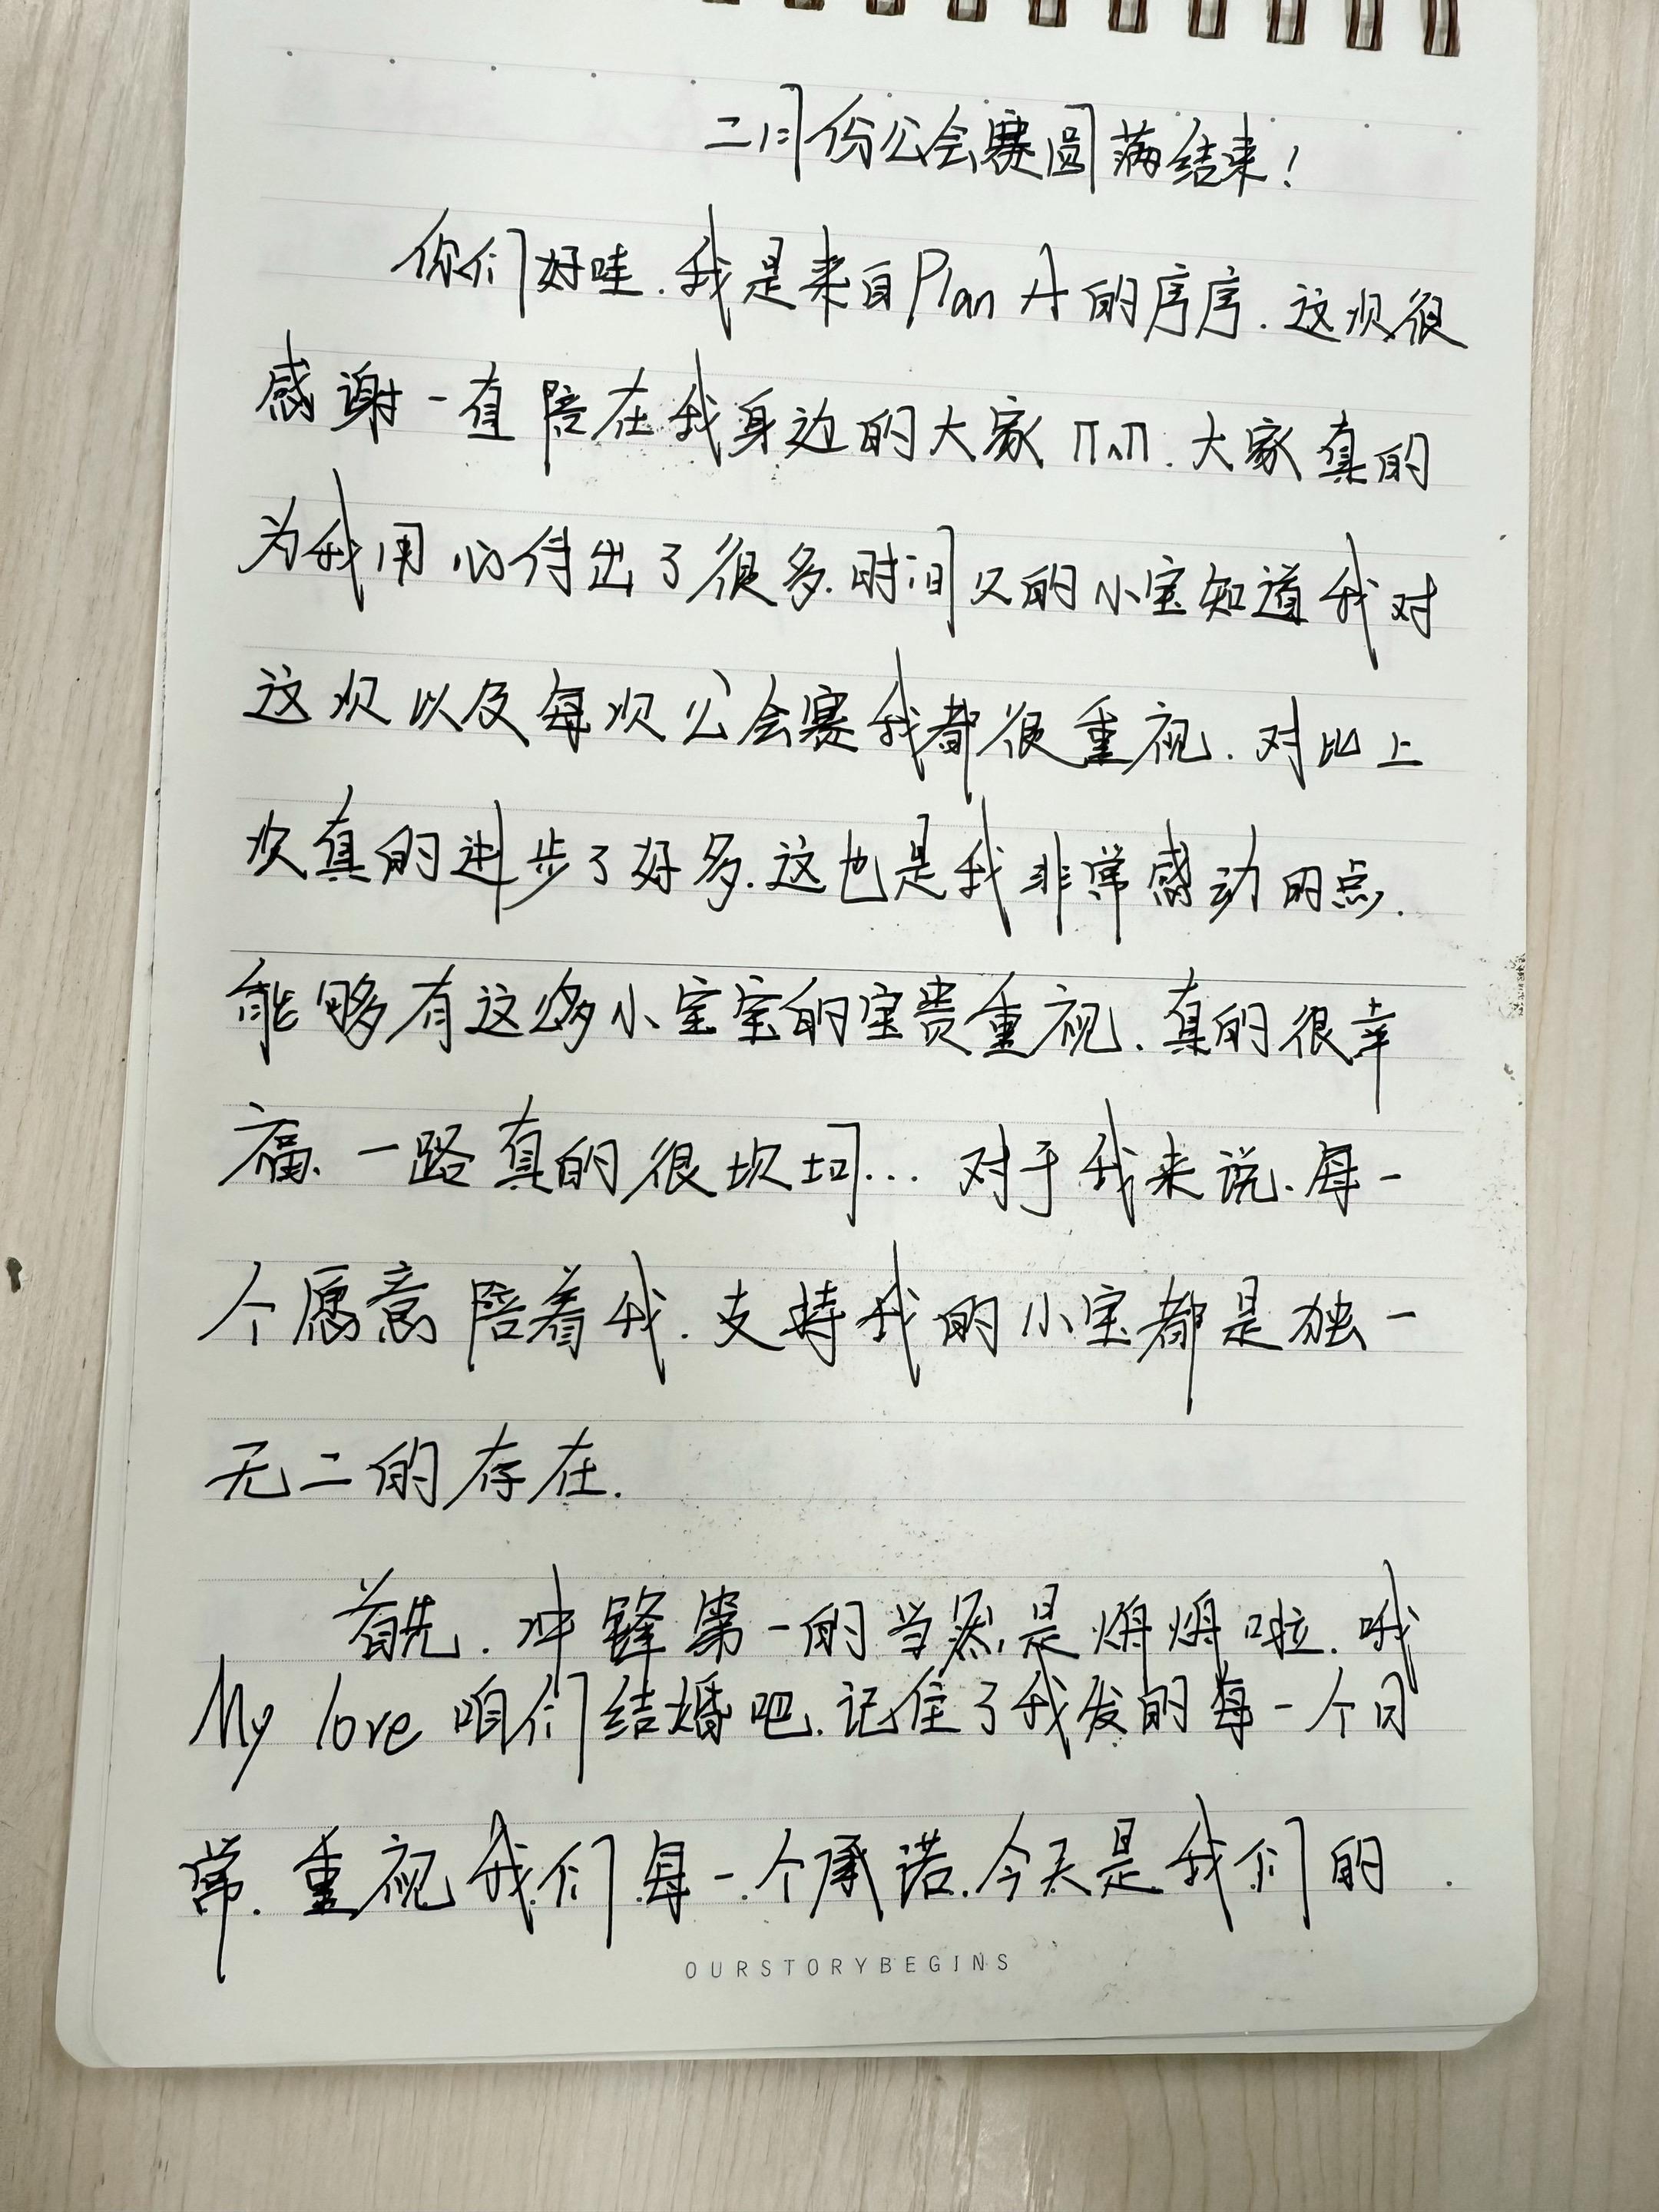 二月份公会赛圆满结束！
你们好哇.我是来自Plan A的序序.这次很
感谢一直陪在我身边的大家 TnT.大家真的
为我用心付出了很多.时间久的小宝知道我对
这次以及每次公会赛我都很重视.对比上
次真的进步了好多.这也是我非常感动的点.
能够有这么多小宝宝的宝贵重视.真的很幸
福.一路真的很坎坷...对于我来说.每一
个愿意陪着我.支持我的小宝都是独一
无二的存在.
首先.冲锋第一的当然是焗焗啦.哦
My love 咱们结婚吧.记住了我发的每一个日
常.重视我们每一个承诺.今天是我们的
OURSTORYBEGINS